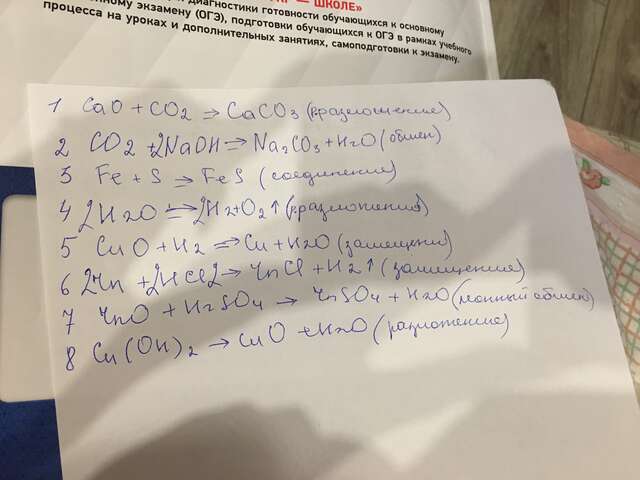 — ШКОЛЕ»
и диагностики готовности обучающихся к основному
экзамену (ОГЭ), подготовки обучающихся к ОГЭ в рамках учебного
процесса на уроках и дополнительных занятиях, самоподготовки к экзамену.
1 CaO + CO2 ⇒ CaCO3 (разложение)
2 CO2 + 2NaOH ⇒ Na2CO3 + H2O (обмен)
3 Fe + S ⇒ FeS (соединение)
4 2H2O ⇒ 2H2 + O2↑ (разложения)
5 CuO + H2 ⇒ Cu + H2O (замещени)
6 2Zn + 2HCl2 → ZnCl + H2↑ (замищение)
7 ZnO + H2SO4 → ZnSO4 + H2O (ионный обмен)
8 Cu(OH)2 → CuO + H2O (разложение)